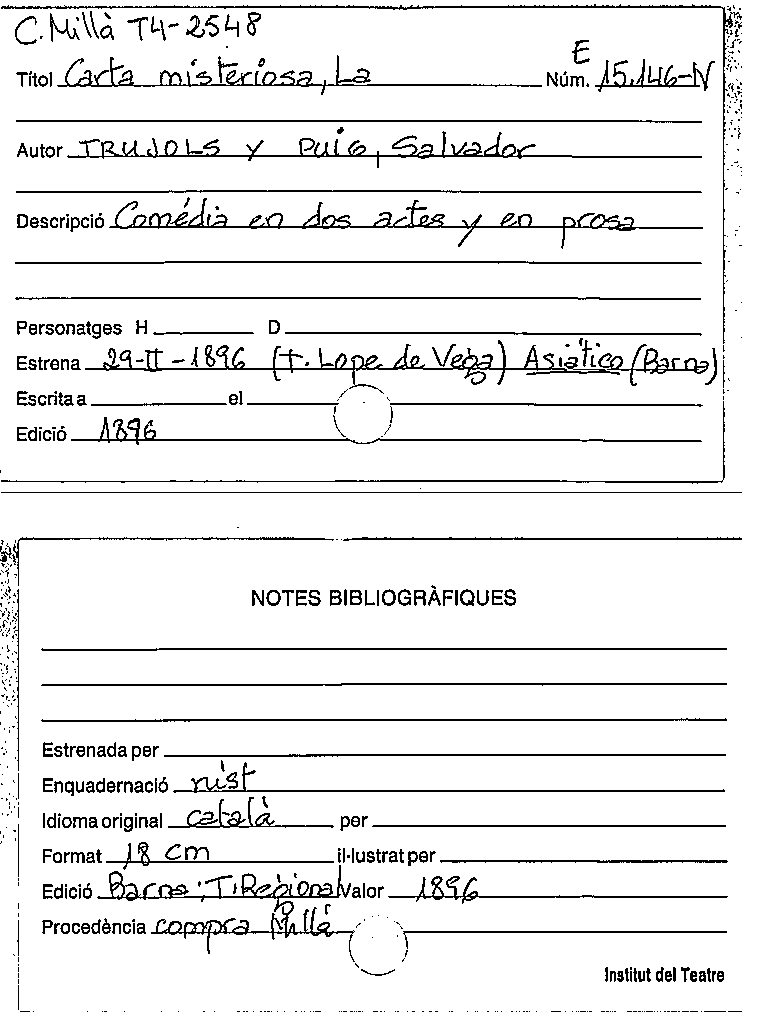 C. Millà T4-2548
E
Títol Carta misteriosa, La Núm. 15.146-N
Autor TRUJOLS y PUIG, Salvador
Descripció Comédia en dos actes y en prosa
Personatges H D
Estrena 29-II-1896 (T. Lope de Vega) Asiático (Barna)
Escrita a el
Edició 1896
NOTES BIBLIOGRÀFIQUES
Estrenada per
Enquadernació rúst
Idioma original català per
Format 18 cm il·lustrat per
Edició Barna: T. Regional Valor 1896
Procedència compra Millà
Institut del Teatre